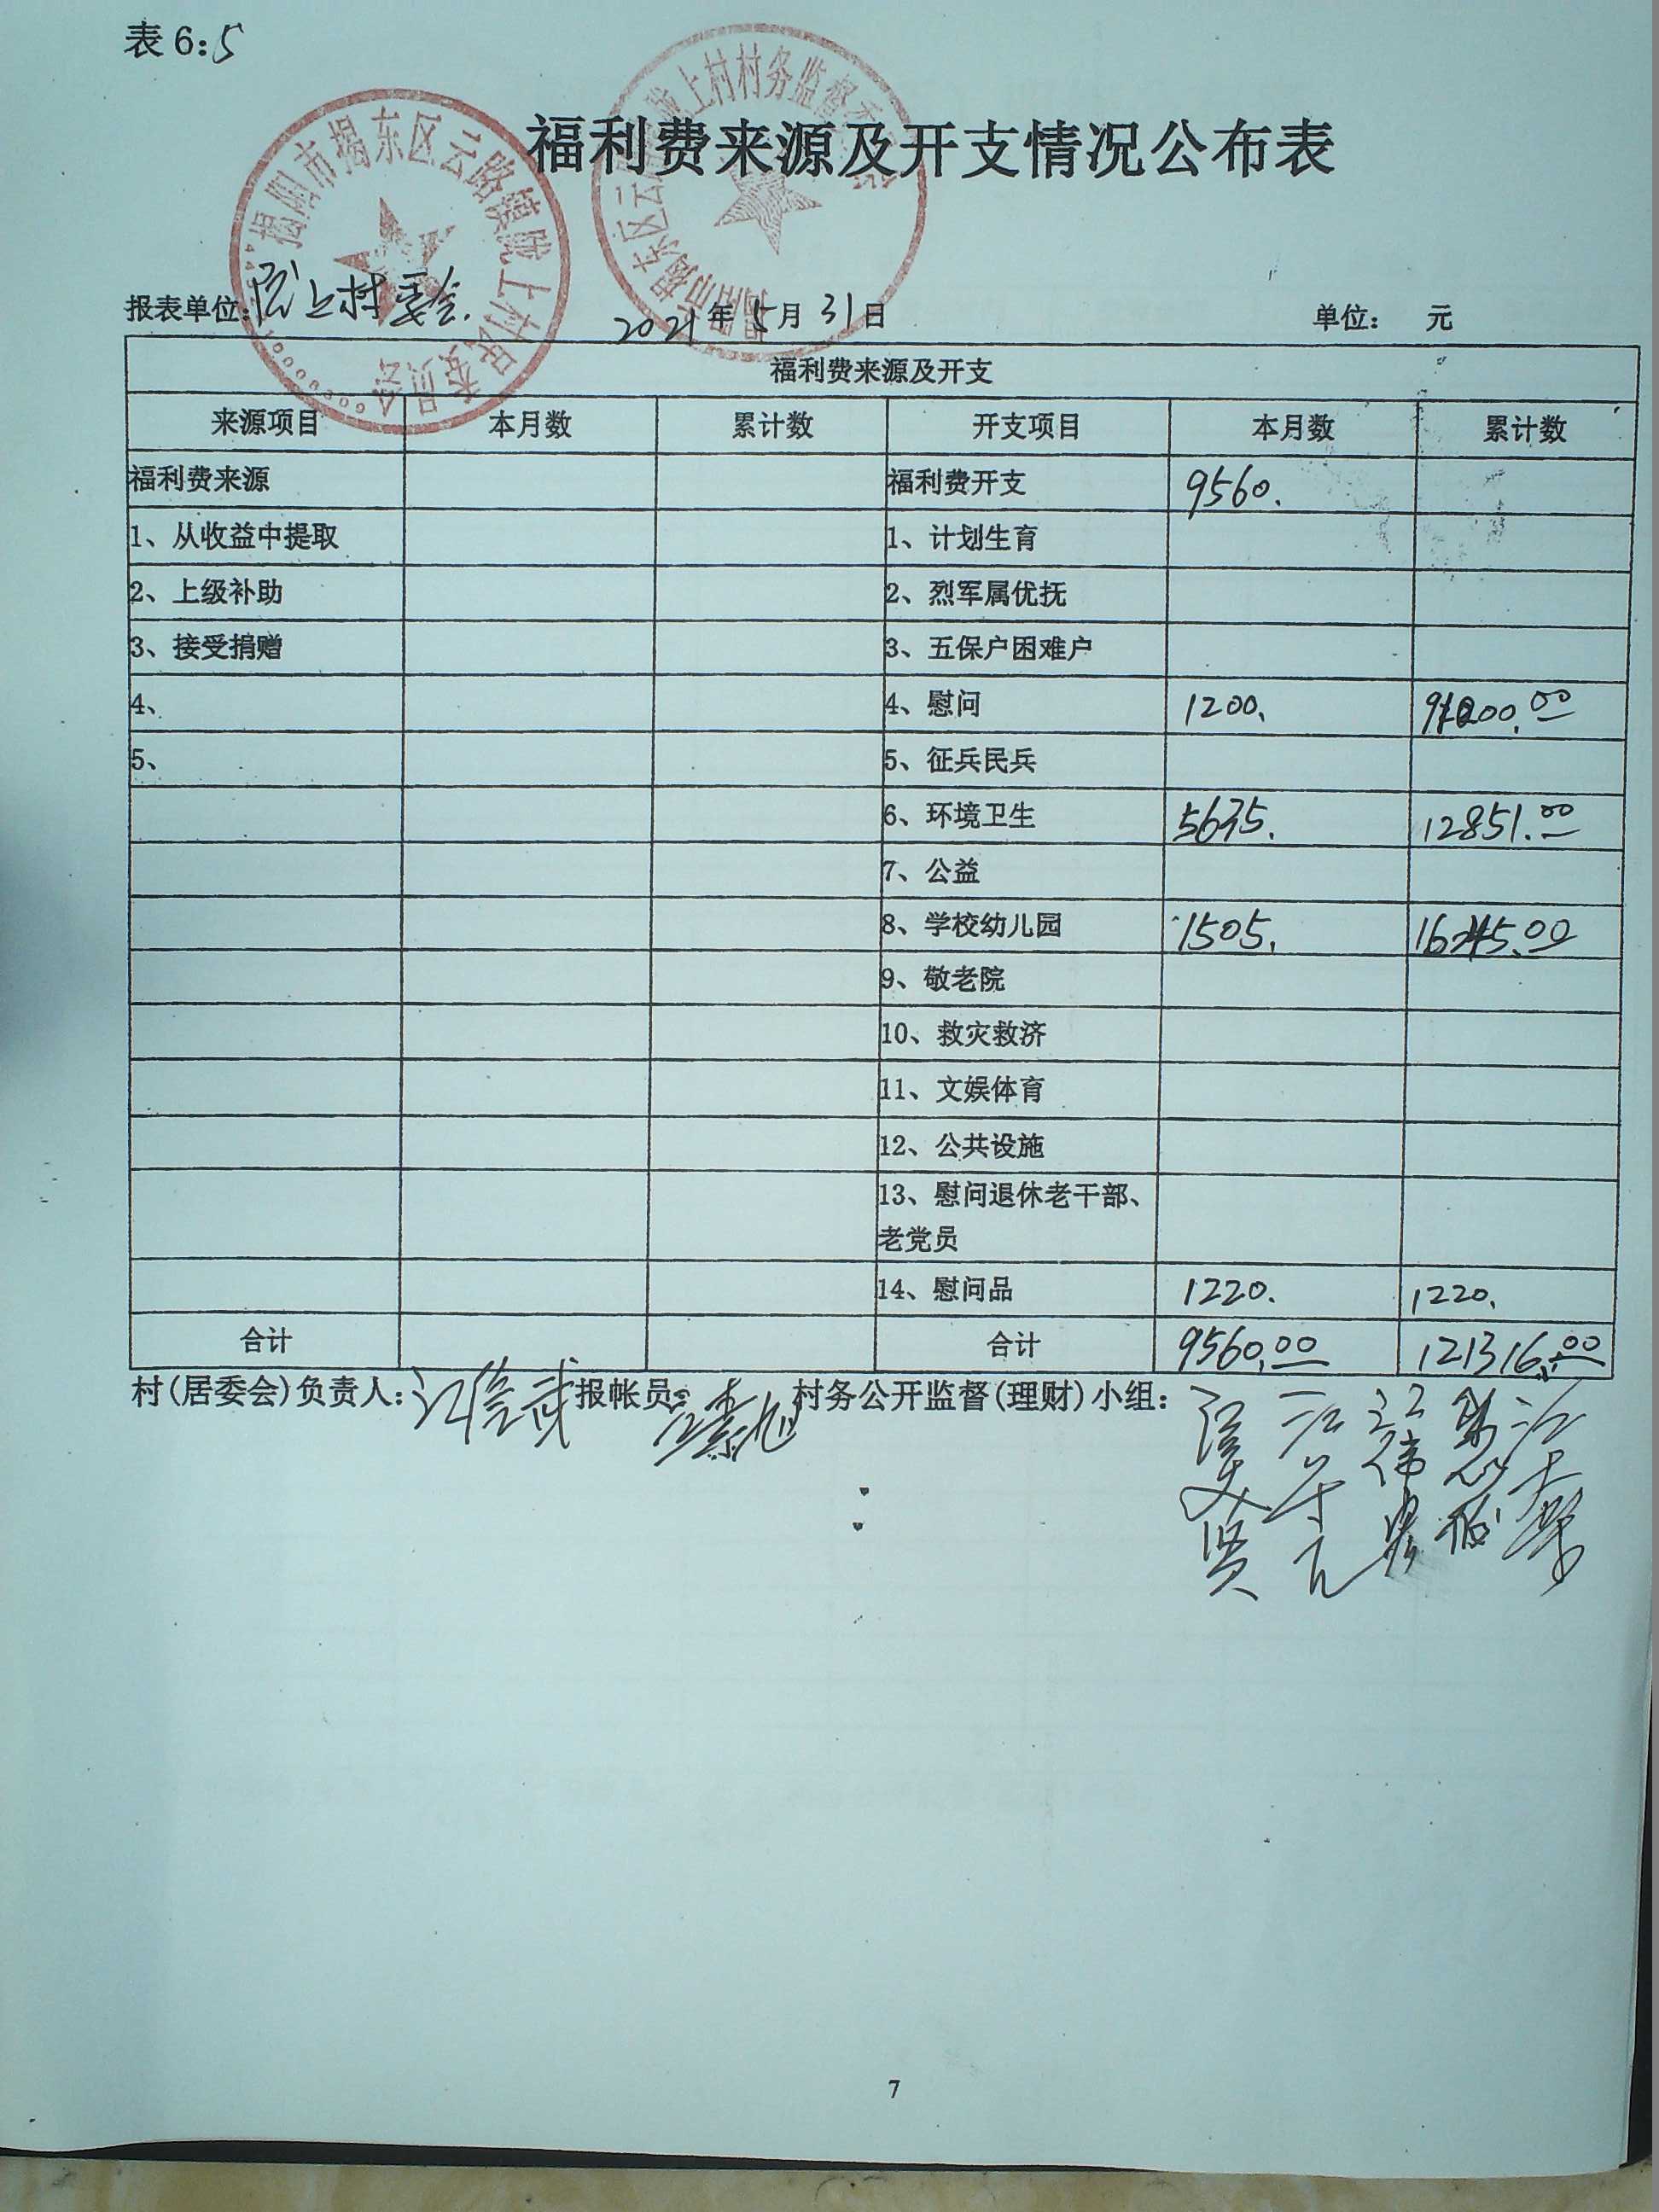 表 6:5
福利费来源及开支情况公布表
揭阳市揭东区云路镇陇上村民委员会
揭阳市揭东区云路镇陇上村村务监督委员会
报表单位:陇上村委会. 2021年 5月 31日 单位: 元
福利费来源及开支
来源项目 本月数 累计数 开支项目 本月数 累计数
福利费来源 福利费开支 9560.
1、从收益中提取 1、计划生育
2、上级补助 2、烈军属优抚
3、接受捐赠 3、五保户困难户
4、 4、慰问 1200.
5、 5、征兵民兵
6、环境卫生 5635. 12851.00
7、公益
8、学校幼儿园 1505.
9、敬老院
10、救灾救济
11、文娱体育
12、公共设施
13、慰问退休老干部、
老党员
14、慰问品 1220. 1220.
合计 合计 9560.00 121316.00
村(居委会)负责人: 报帐员: 村务公开监督(理财)小组:
7